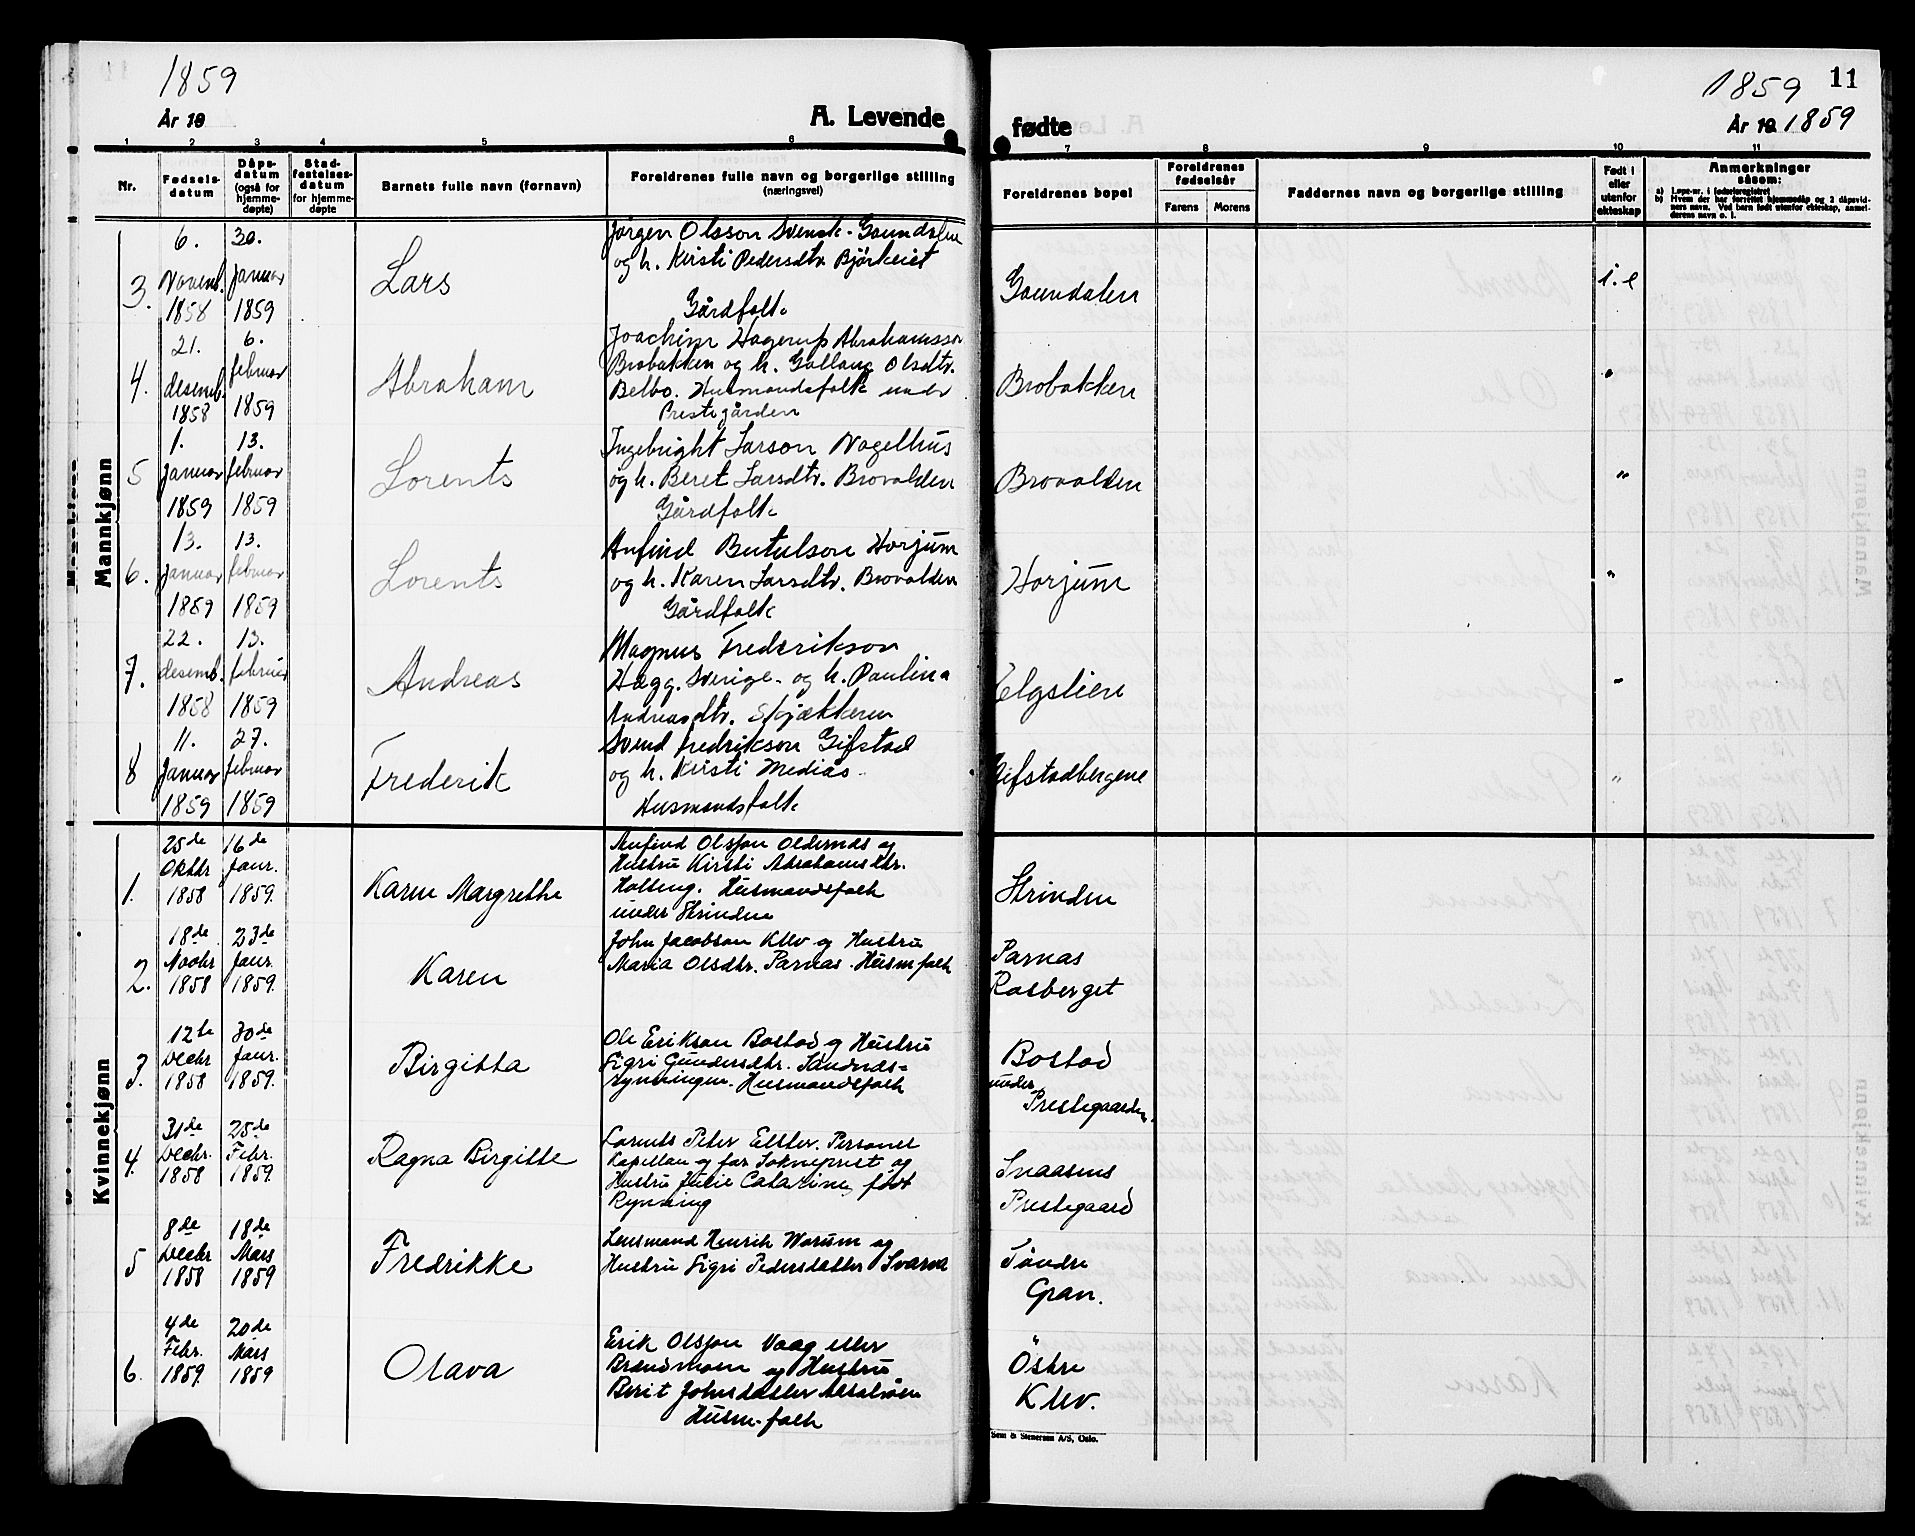 1859
År 19
A. Levende
1 2 3 4 5 6
Nr.
Fødsels-
datum
Dåps-
datum
(også for
hjemme-
døpte)
Stad-
festelses-
datum
for hjemme-
døpte
Barnets fulle navn (fornavn)
Foreldrenes fulle navn og borgerlige stilling
(næringsvei)
Mannkjønn
3. 6. Novemb. 1858 30. Januar 1859 Lars
Jørgen Olsson Svensk-Gaundalen
og h. Kirsti Pedersdtr. Bjørkeiet
Gårdfolk
4. 21. desemb. 1858 6. februar 1859 Abraham
Joachim Hagerup Abrahamsson
Brobakken og h. Gullaug Olsdtr.
Belbo. Husmandsfolk under
Prestegården
5 1. Januar 1859 13. februar 1859 Lorents
Ingebright Larson Nagelhus
og h. Beret Larsdtr. Brovolden
Gårdfolk
6. 13. Januar 1859 13. februar 1859 Lorents
Anfind Bentulson Horjum
og h. Karen Larsdtr. Brovolden
Gårdfolk
7. 22. desemb. 1858 13. februar 1859 Andreas
Magnus Frederikson
Hægg. Sverige- og h. Paulina
Andreasdtr. Skjækkeren
8 11. Januar 1859 27. februar 1859 Frederik
Svend Fredrikson Gifstad
og h. Kirsti Mediås
Husmandsfolk
Kvinnekjønn
1. 25de Oktbr 1858 16de Janr. 1859. Karen Margrethe
Anfind Olsson Oldernes og
Hustru Kirsti Abrahamsdtr.
Husmandsfolk
under Strinden
2. 18de Novbr 1858 23de Janr. 1859. Karen
John Jacobson Klev og Hustru
Maria Olsdtr. Parnas. Husm folk
3. 12te Decbr 1858 30de Janr. 1859. Birgitta
Ole Erikson Bostad og Hustru
Sigri Gundersdtr. Sandnes-
rynningen. Husmandsfolk
4. 31de Decbr. 1858 25de Febr. 1859. Ragna Birgitte
Lorents Peter Elster. Personel
Kapellan og for Sokneprest og
Hustru Julie Catarine født
Rynning
5 8de Decbr 1858 18de Mars 1859 Fredrikke
Lensmand Henrik Worum og
Hustru Sigri Pedersdatter Svarva
6. 4de Febr. 1859. 20de Mars 1859 Olava
Erik Olsson Vaag eller
Brandmoen og Hustru
Berit Johnsdatter
Husm. folk
1859
11
År 19 1859
fødte
7 8 9 10 11
Foreldrenes bopel
Foreldrenes
fødselsår
Farens Morens
Faddernes navn og borgerlige stilling
Født i
eller
utenfor
ekteskap
Anmerkninger
såsom:
a) Løpe-nr. i fødselsregistret
b) Hvem der har forrettet hjemmedåp og 2 dåpsvid-
ners navn. Ved barn født utenfor ekteskap, anmel-
derens navn o. l.
Gaundalen i. e
Brobakken "
Brovolden "
Horjum "
Elgslien "
Gifstadbergene "
Strinden
Parnas
Rosberget
Bostad
under
Prestegaarden.
Snaasens
Prestegaard
Søndre
Gran.
Östre
Klev.
Sem & Stenersen A/S, Oslo.